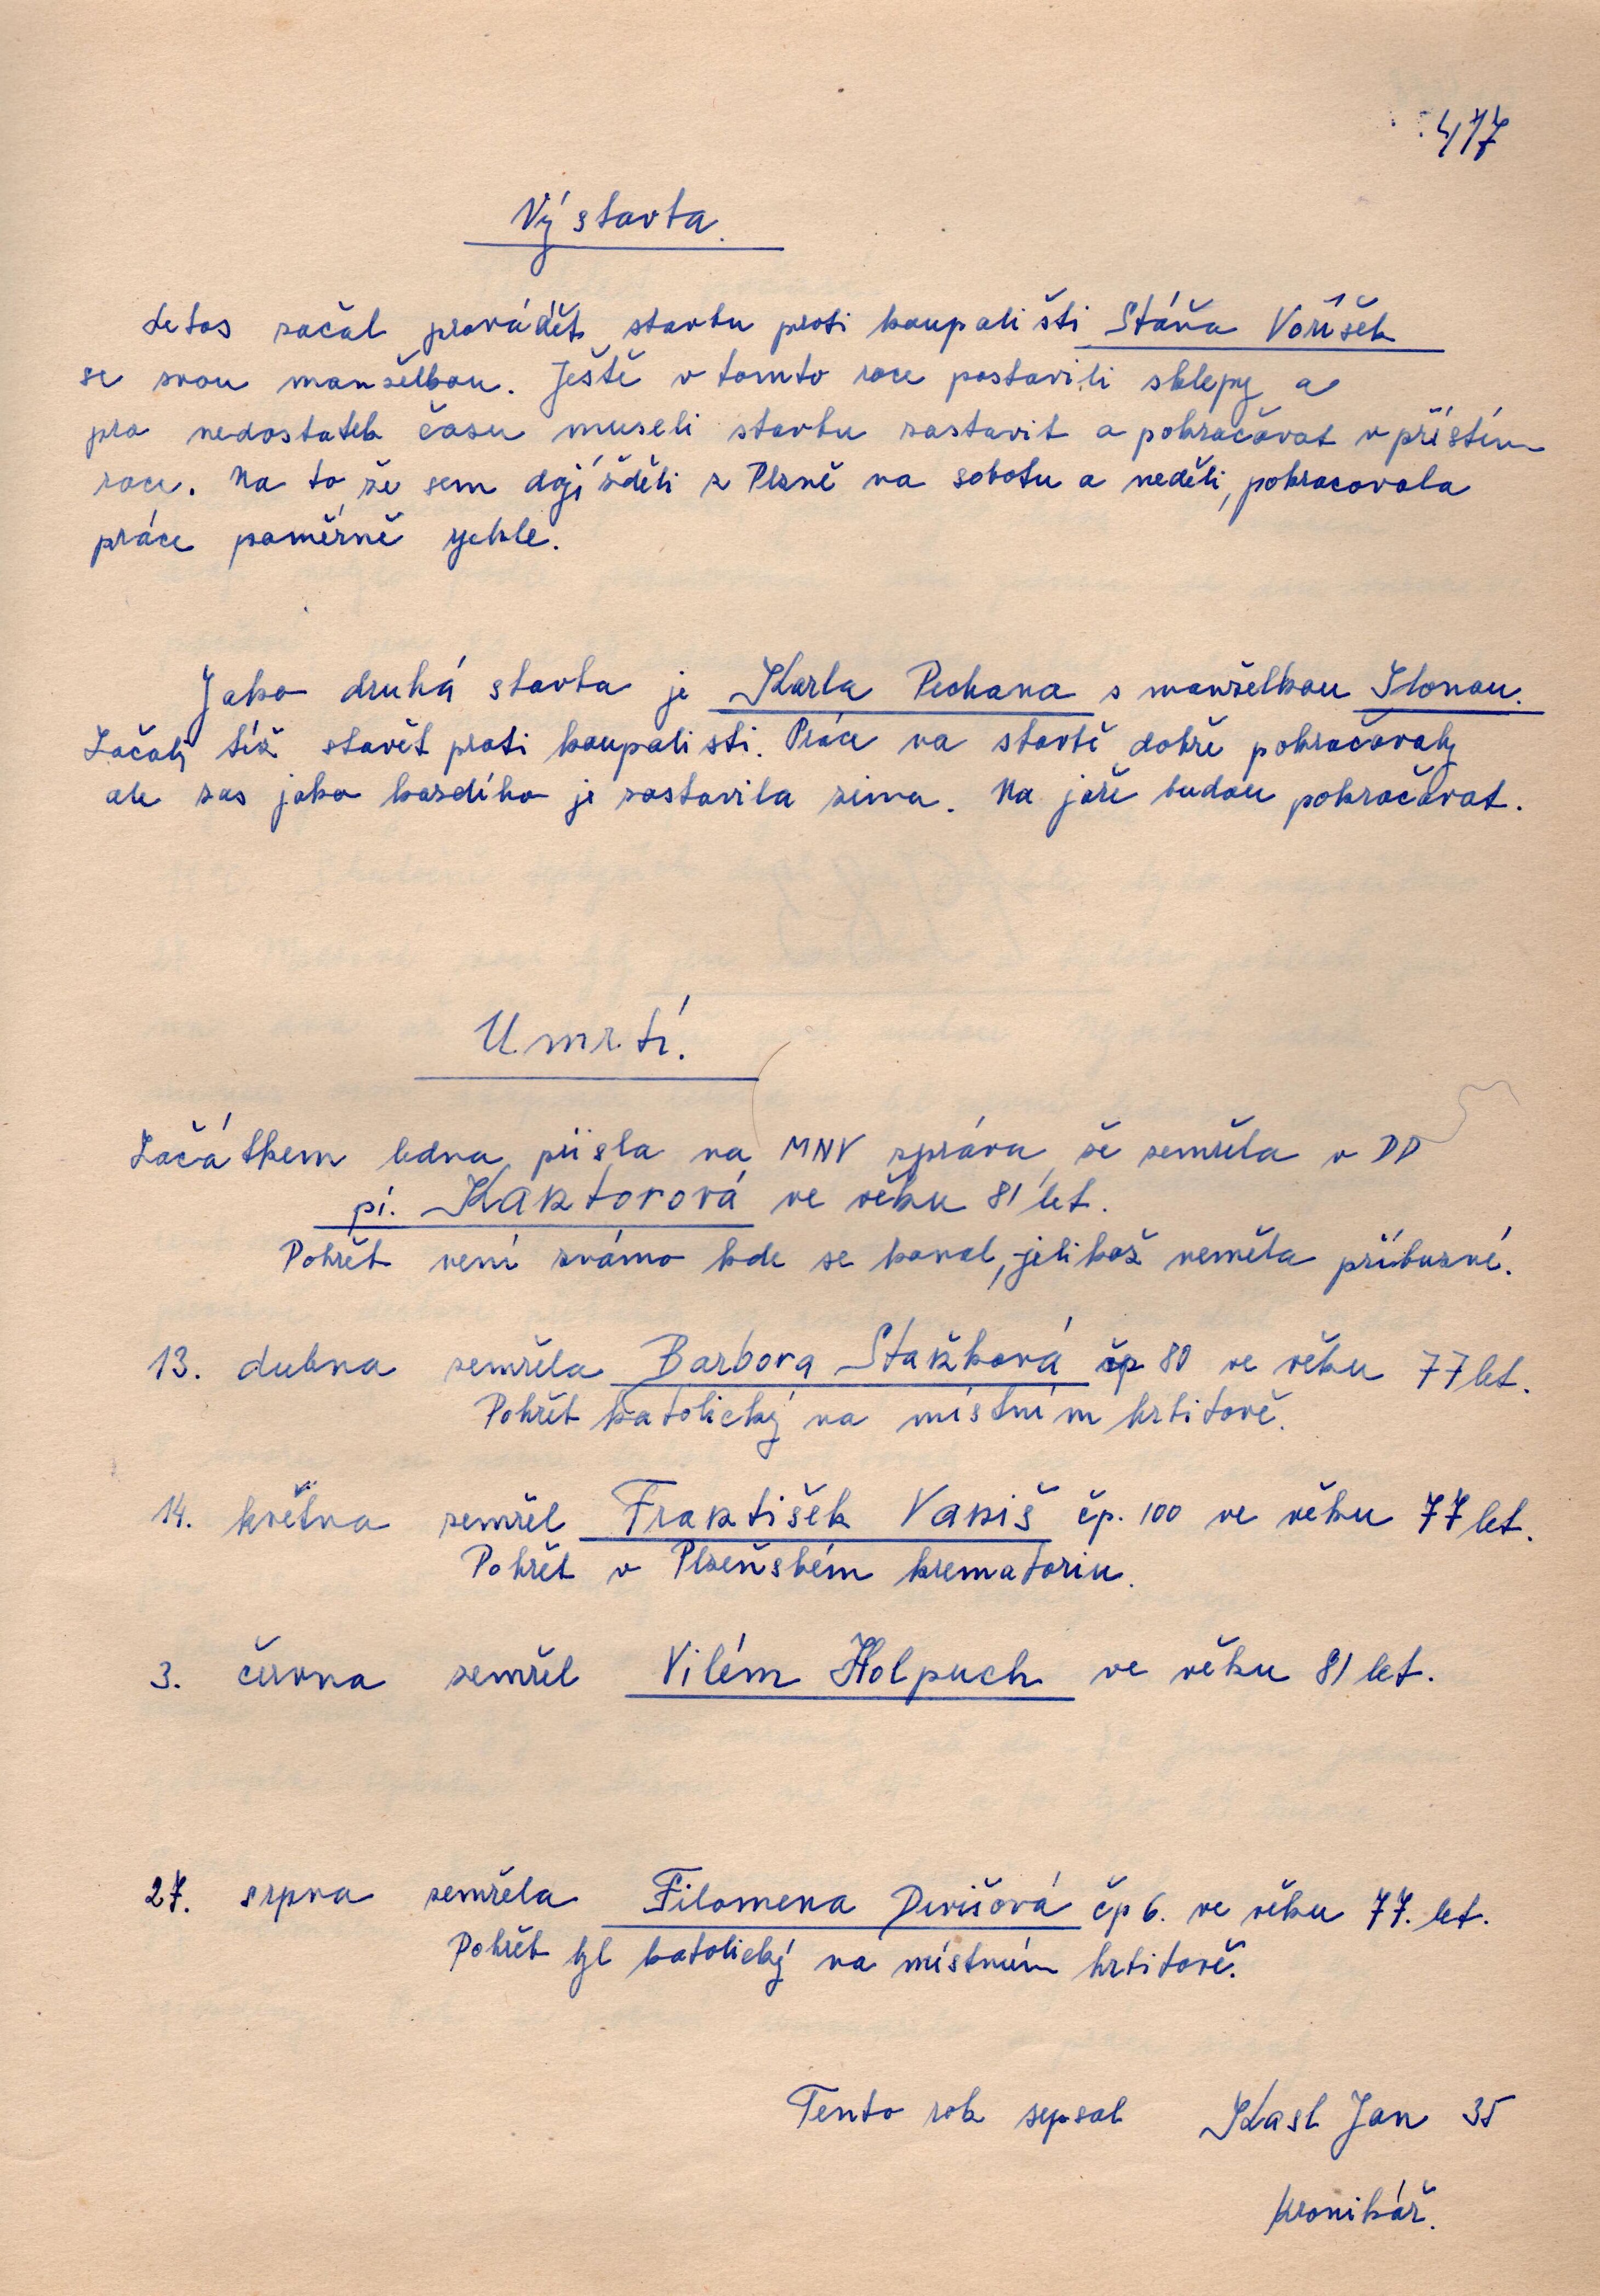 417
Výstavba.
Letos začal provádět stavbu proti koupališti Stáňa Voříšek
se svou manželkou. Ještě v tomto roce postavili sklepy a
pro nedostatek času museli stavbu zastavit a pokračovat v příštím
roce. Na to, že sem dojížděli z Plzně na sobotu a neděli, pokracovala
práce poměrně rychle.
Jako druhá stavba je Karla Pechana s manželkou Ilonou.
Začaly též stavět proti koupalisti. Práce na stavbě dobře pokračovaly
ale zas jako každého je zastavila zima. Na jaře budou pokračovat.
Umrtí.
Začátkem ledna přisla na MNV zpráva, že zemřela v DD
pí. Kantorová ve věku 81 let.
Pohřeb není známo kde se konal, jelikož neměla příbuzné.
13. dubna zemřela Barbora Staňková čp 80 ve věku 77 let.
Pohřeb katolický na místním hřbitově.
14. května zemřel František Vaniš čp. 100 ve věku 77 let.
Pohřeb v Plzeňském krematoriu.
3. června zemřel Vilém Holpuch ve věku 81 let.
27. srpna zemřela Filomena Divišová čp 6. ve věku 77. let.
Pohřeb byl katolický na místním hřbitově.
Tento rok sepsal Kasl Jan 35
kronikář.